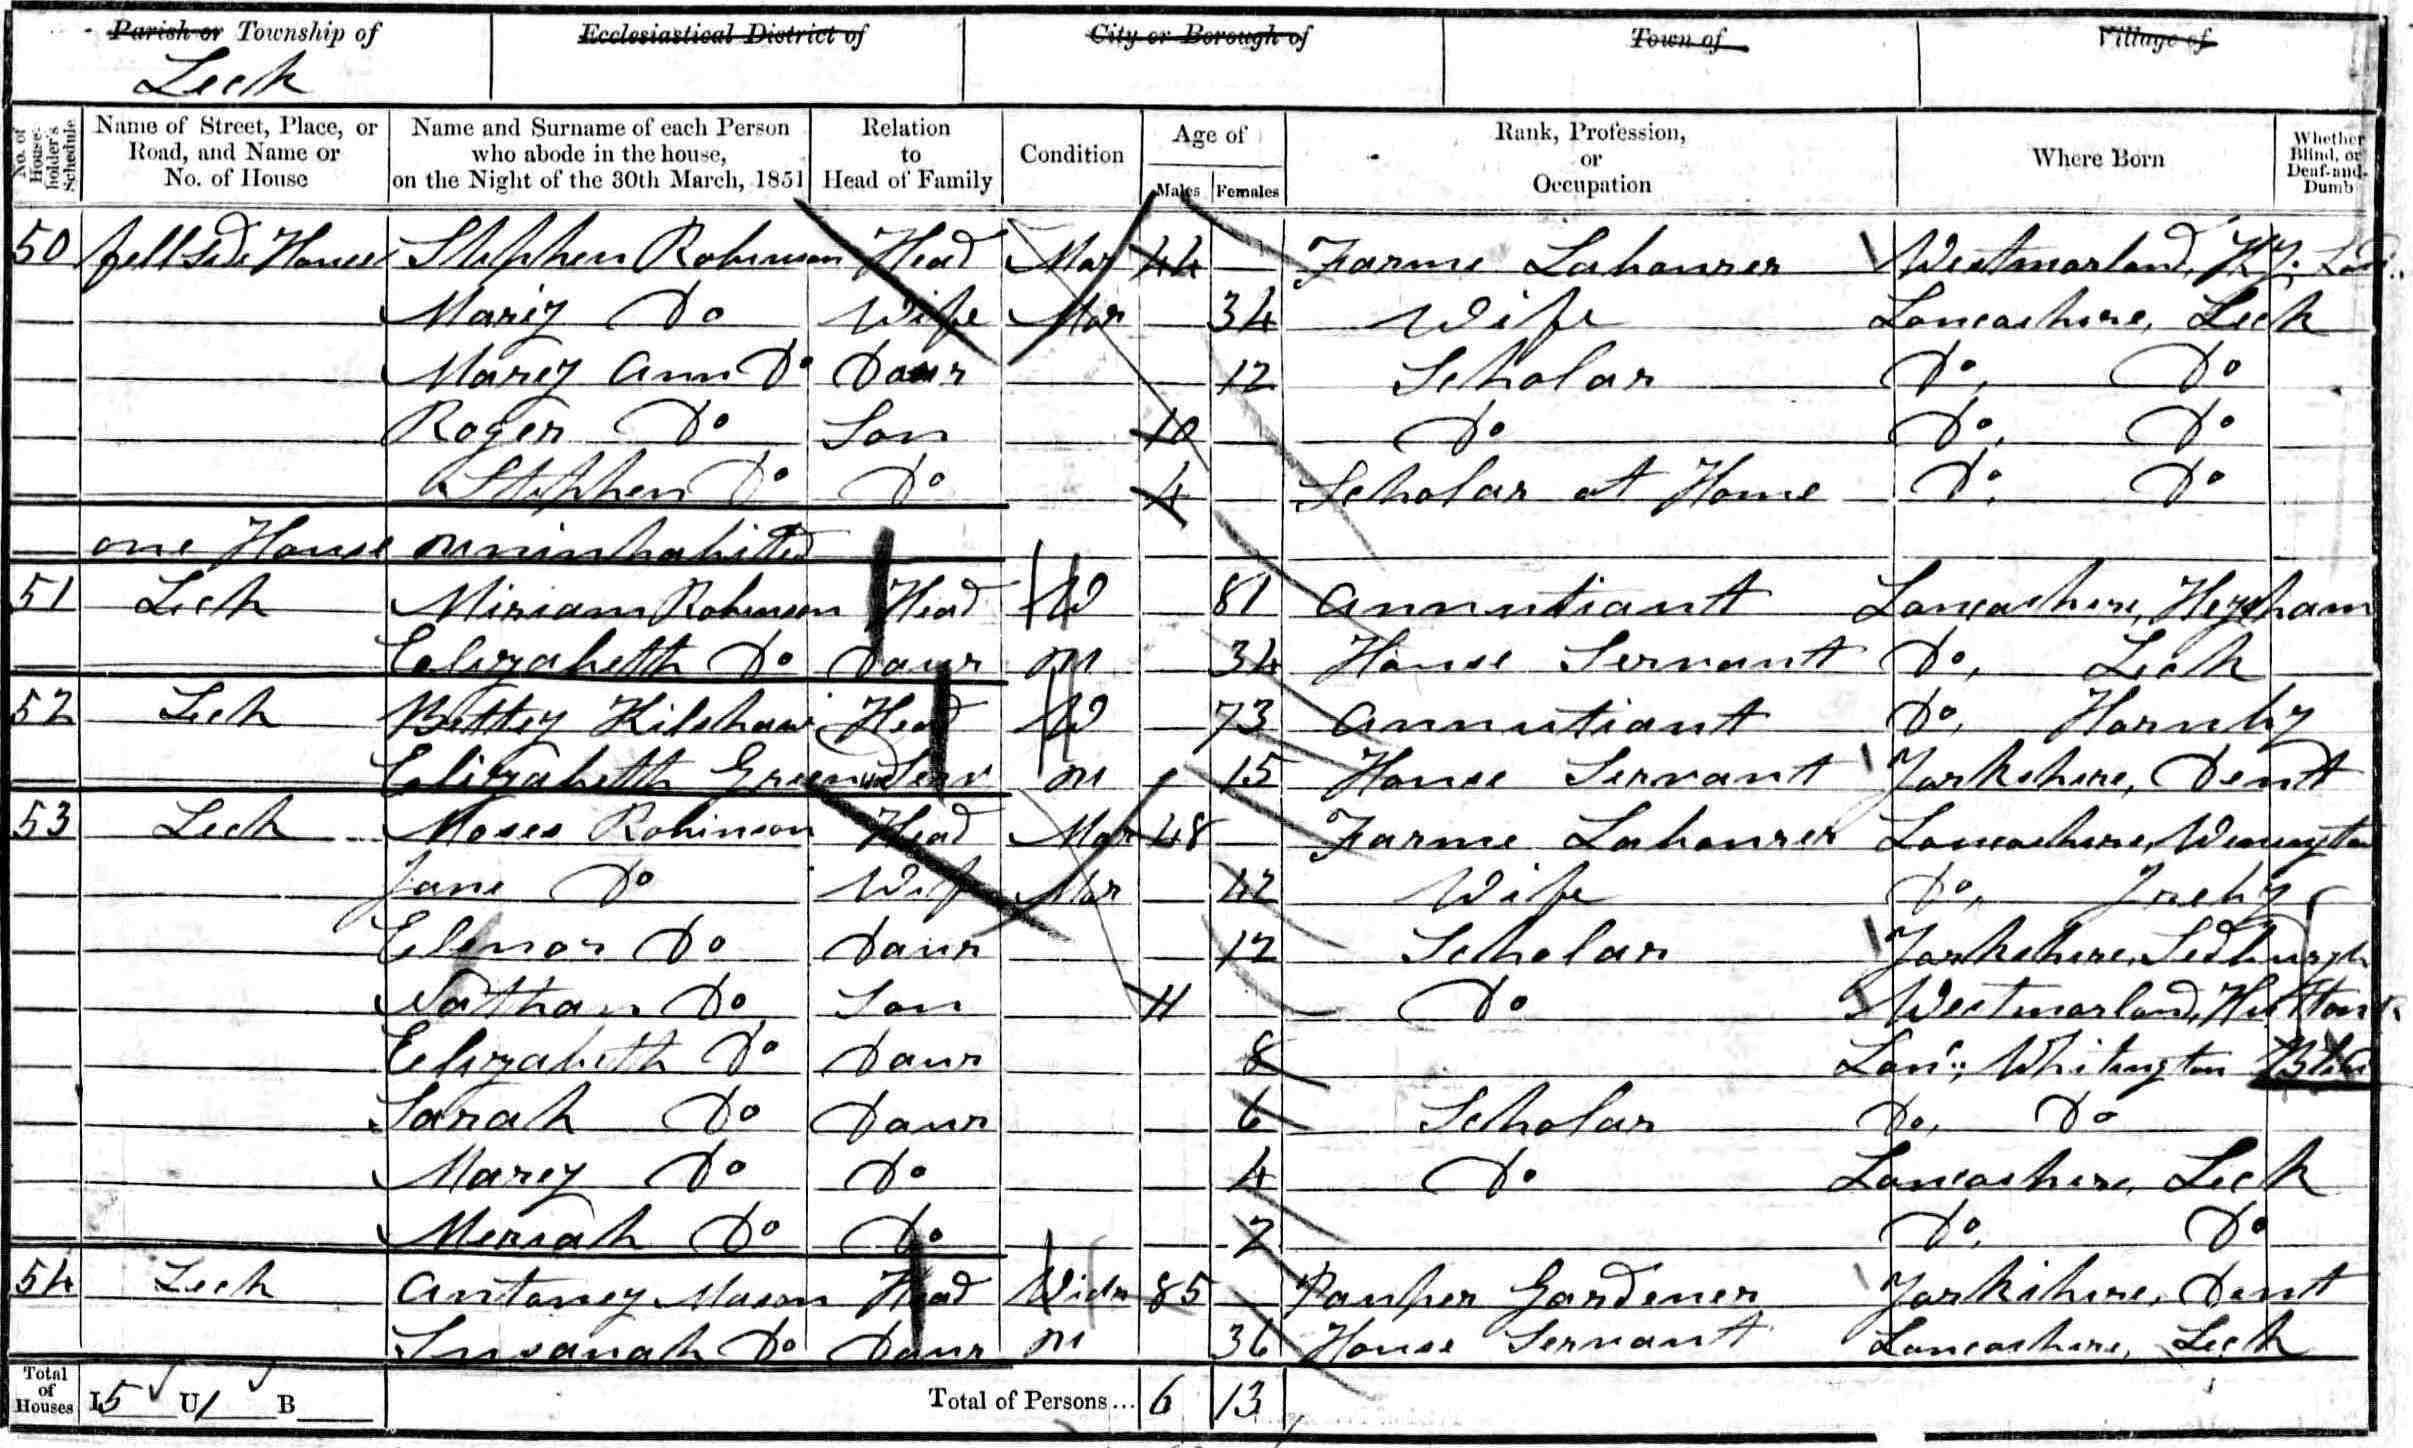 Parish or Township of Ecclesiastical District of City or Borough of Town of Village of
Leck
No. of House-holder's Schedule Name of Street, Place, or Road, and Name or No. of House Name and Surname of each Person who abode in the house, on the Night of the 30th March, 1851 Relation to Head of Family Condition Age of Males Females Rank, Profession, or Occupation Where Born Whether Blind, or Deaf-and-Dumb
50 fell Side House Stephen Robinson Head Mar 44 Farme Labourer Westmorland,
Marey Do Wife Mar 34 Wife Lancashire, Leck
Marey Ann Do Daur 12 Scholar Do, Do
Roger Do Son 10 Do Do, Do
Stephen Do Do 4 Scholar at Home Do, Do
one House uninhabited
51 Leck Miriam Robinson Head W 81 Annutiant Lancashire, Heysham
Elizabeth Do Daur M 34 House Servant Do, Leck
52 Leck Bettey Kilshaw Head W 73 Annutiant Do, Hornby
Elizabeth Greenwood Serv M 15 House Servant Yorkshire, Dent
53 Leck Moses Robinson Head Mar 48 Farme Labourer Lancashire, Wenington
Jane Do Wife Mar 42 Wife Do, Ireby
Elenor Do Daur 12 Scholar Yorkshire, Sedburgh
Nathan Do Son 11 Do Westmorland, Hutton
Elizabeth Do Daur 8 Lanc, Whitington Blind
Sarah Do Daur 6 Scholar Do, Do
Marey Do Do 4 Do Lancashire, Leck
Meriah Do Do 2 Do, Do
54 Leck Antoney Mason Head Widr 85 Pauper Gardener Yorkshire, Dent
Susanah Do Daur M 36 House Servant Lancashire, Leck
Total of Houses I 5 U 1 B Total of Persons... 6 13